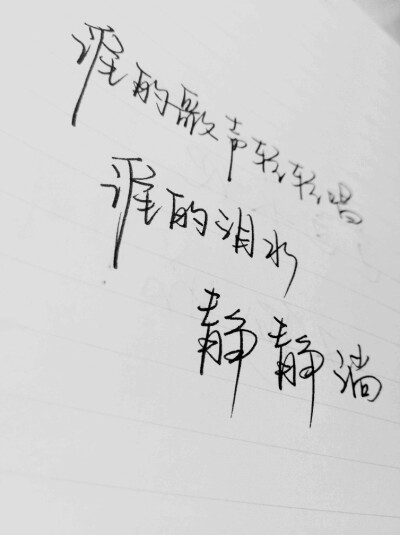 谁的歌声轻轻唱
谁的泪水
静静淌